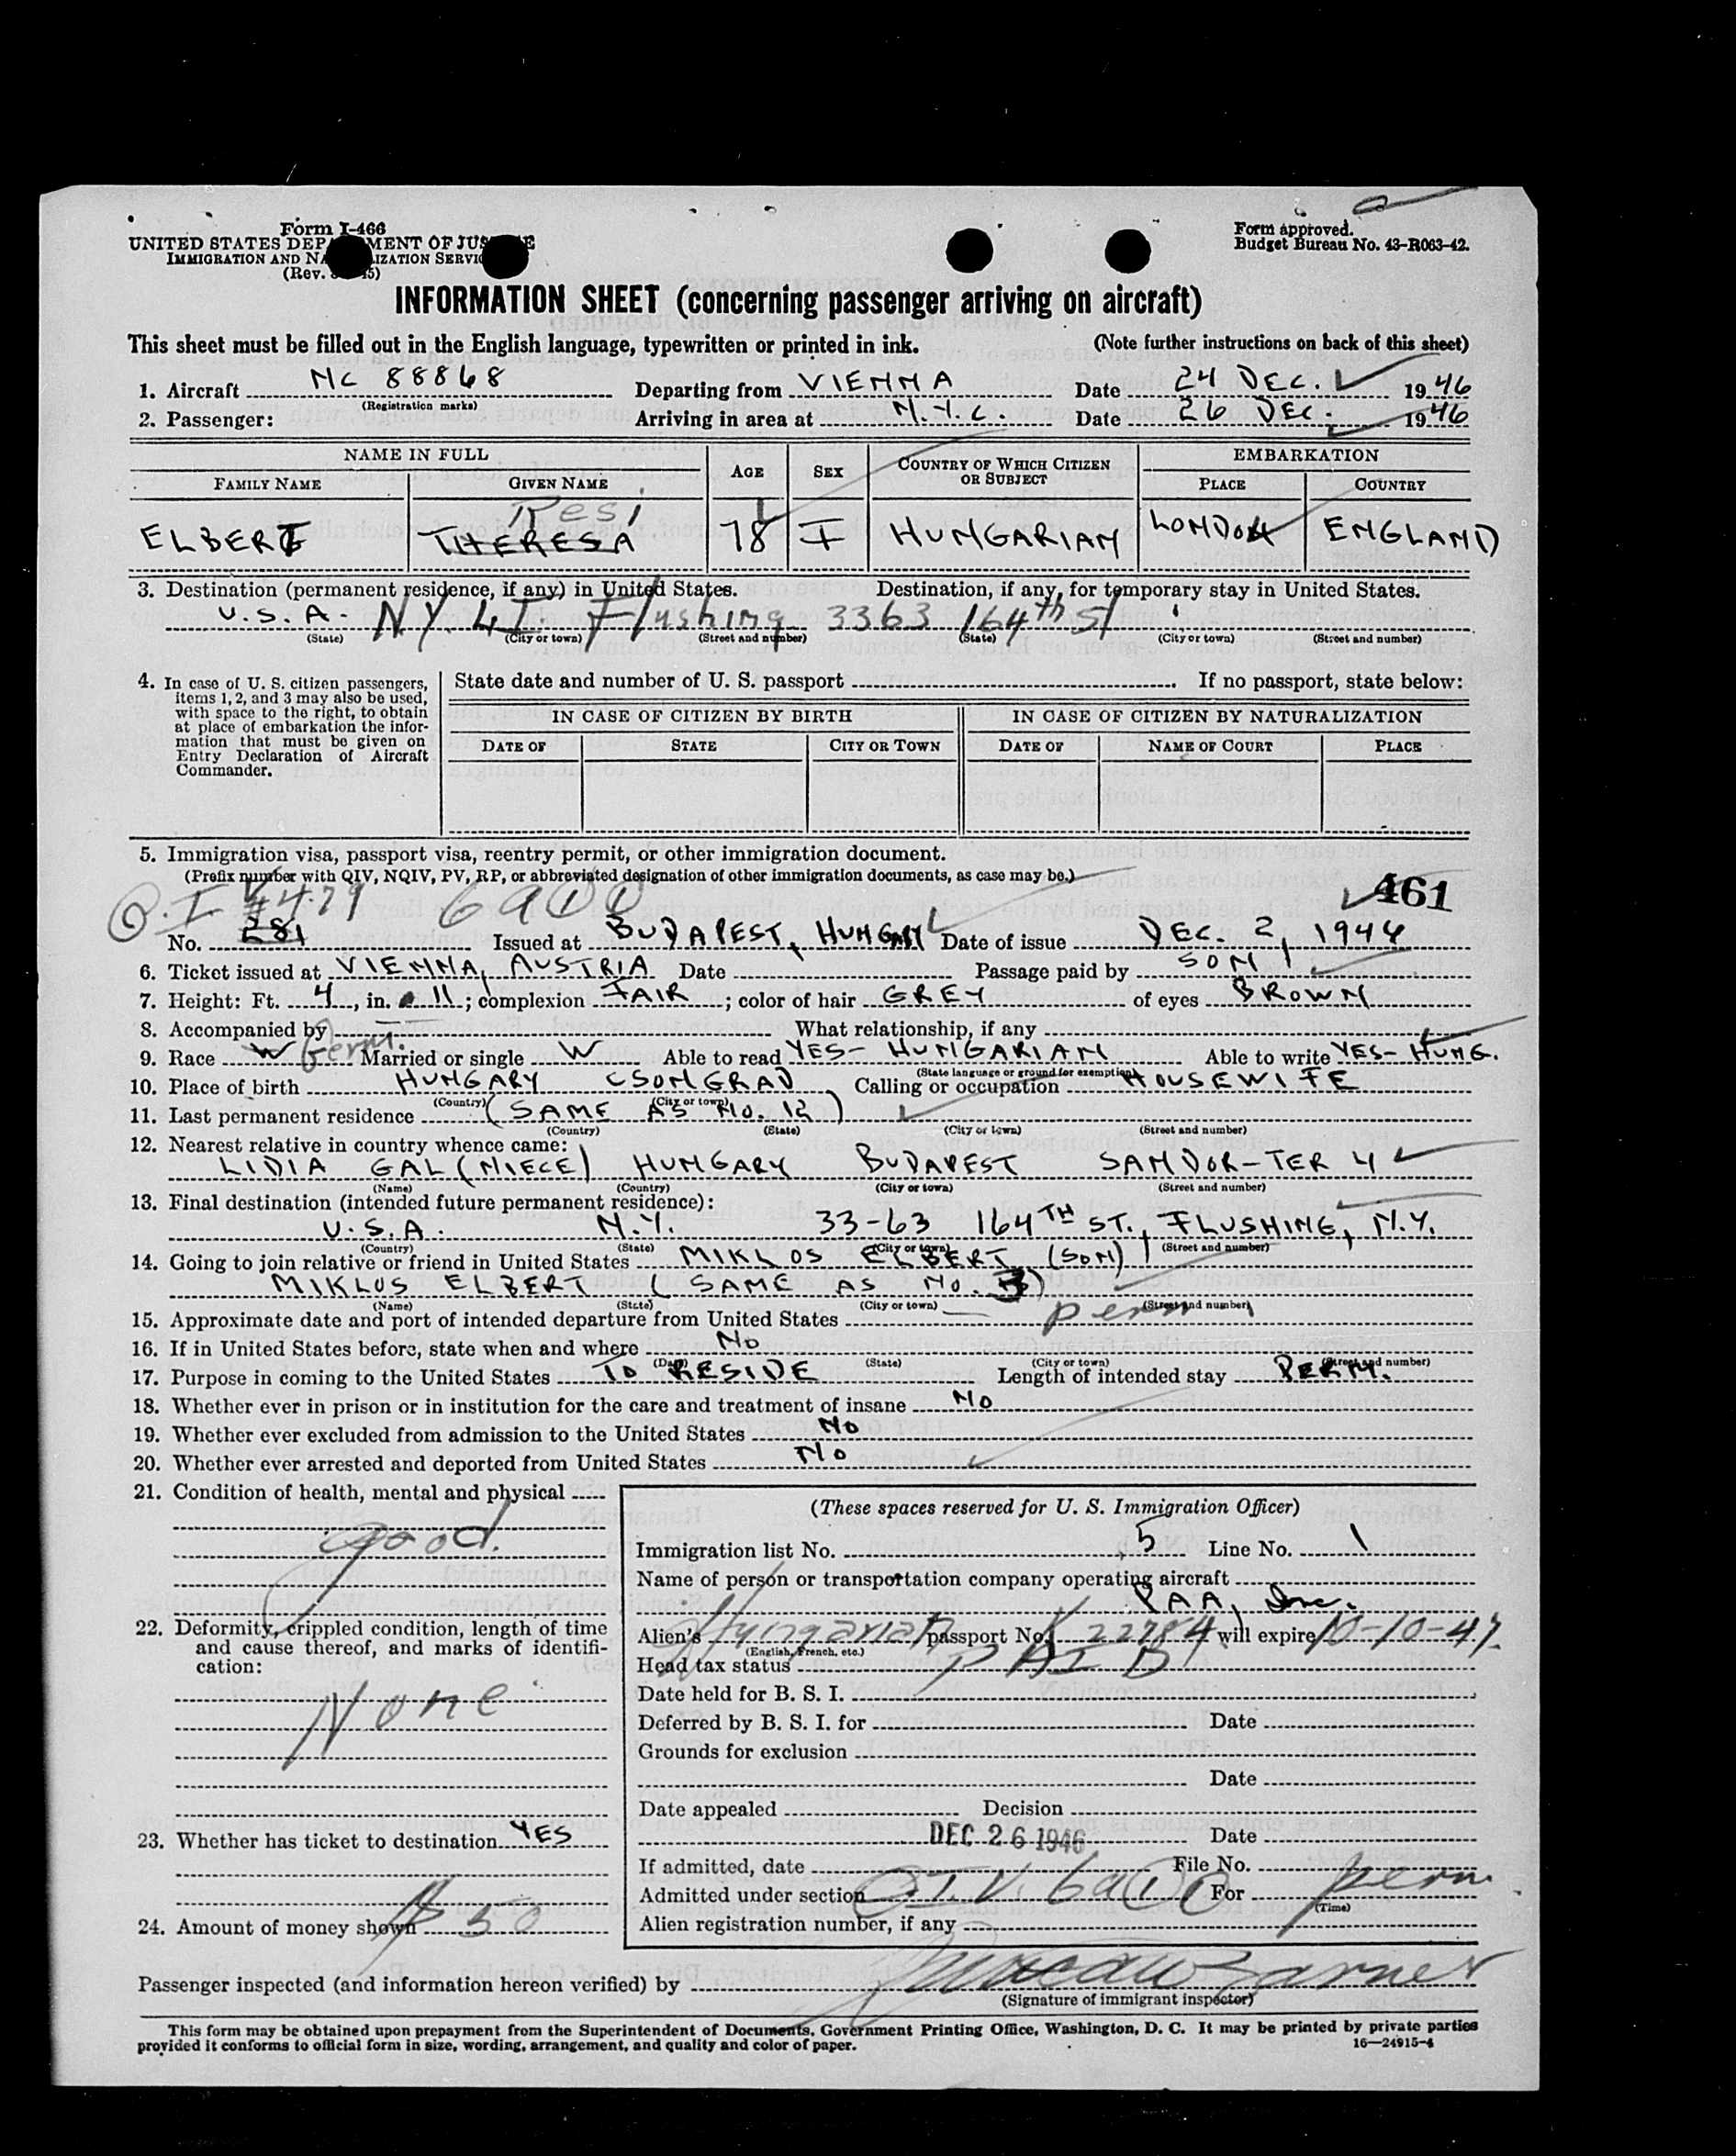 Form I-466
UNITED STATES DEPARTMENT OF JUSTICE
IMMIGRATION AND NATURALIZATION SERVICE
(Rev.
Form approved.
Budget Bureau No. 43-R063-42.
INFORMATION SHEET (concerning passenger arriving on aircraft)
This sheet must be filled out in the English language, typewritten or printed in ink. (Note further instructions on back of this sheet)
1. Aircraft NC 88868 Departing from VIENNA Date 24 DEC. 1946
(Registration marks)
2. Passenger: Arriving in area at N.Y.C. Date 26 DEC. 1946
NAME IN FULL AGE SEX COUNTRY OF WHICH CITIZEN OR SUBJECT EMBARKATION
FAMILY NAME GIVEN NAME PLACE COUNTRY
Resi
ELBERT THERESA 78 F HUNGARIAN LONDON ENGLAND
3. Destination (permanent residence, if any) in United States. Destination, if any, for temporary stay in United States.
U.S.A. N.Y. L.I. Flushing 3363 164th St
(State) (City or town) (Street and number) (State) (City or town) (Street and number)
4. In case of U. S. citizen passengers, items 1, 2, and 3 may also be used, with space to the right, to obtain at place of embarkation the information that must be given on Entry Declaration of Aircraft Commander.
State date and number of U. S. passport If no passport, state below:
IN CASE OF CITIZEN BY BIRTH IN CASE OF CITIZEN BY NATURALIZATION
DATE OF STATE CITY OR TOWN DATE OF NAME OF COURT PLACE
5. Immigration visa, passport visa, reentry permit, or other immigration document.
(Prefix number with QIV, NQIV, PV, RP, or abbreviated designation of other immigration documents, as case may be.)
Q.I.V #479 6a(1)(1) 461
No. 281 Issued at BUDAPEST, HUNGARY Date of issue DEC. 2, 1946
6. Ticket issued at VIENNA, AUSTRIA Date Passage paid by SON
7. Height: Ft. 4, in. 11; complexion FAIR; color of hair GREY of eyes BROWN
8. Accompanied by What relationship, if any
9. Race W Germ. Married or single W Able to read YES- HUNGARIAN Able to write YES- HUNG.
(State language or ground for exemption)
10. Place of birth HUNGARY CSONGRAD Calling or occupation HOUSEWIFE
(Country) (City or town)
11. Last permanent residence (SAME AS No. 12)
(Country) (State) (City or town) (Street and number)
12. Nearest relative in country whence came:
LIDIA GAL (NIECE) HUNGARY BUDAPEST SANDOR-TER 4
(Name) (Country) (City or town) (Street and number)
13. Final destination (intended future permanent residence):
U.S.A. N.Y. 33-63 164TH ST., FLUSHING, N.Y.
(Country) (State) (City or town) (Street and number)
14. Going to join relative or friend in United States MIKLOS ELBERT (SON)
MIKLOS ELBERT (SAME AS No. 3)
(Name) (State) (City or town) (Street and number)
15. Approximate date and port of intended departure from United States perm
16. If in United States before, state when and where No
(Date) (State) (City or town) (Street and number)
17. Purpose in coming to the United States TO RESIDE Length of intended stay PERM.
18. Whether ever in prison or in institution for the care and treatment of insane No
19. Whether ever excluded from admission to the United States No
20. Whether ever arrested and deported from United States No
21. Condition of health, mental and physical
good.
22. Deformity, crippled condition, length of time and cause thereof, and marks of identification:
None
23. Whether has ticket to destination YES
24. Amount of money shown $50
(These spaces reserved for U. S. Immigration Officer)
Immigration list No. 5 Line No. 1
Name of person or transportation company operating aircraft
PAA, Inc.
Alien's Hungarian passport No. 22784 will expire 10-10-47.
(English, French, etc.)
Head tax status PAID
Date held for B. S. I.
Deferred by B. S. I. for Date
Grounds for exclusion
Date
Date appealed Decision
DEC 26 1946 Date
If admitted, date File No.
Admitted under section Q.I.V. 6a(1)(1) For perm.
(Time)
Alien registration number, if any
Passenger inspected (and information hereon verified) by
(Signature of immigrant inspector)
This form may be obtained upon prepayment from the Superintendent of Documents, Government Printing Office, Washington, D. C. It may be printed by private parties
provided it conforms to official form in size, wording, arrangement, and quality and color of paper. 16—24915-4